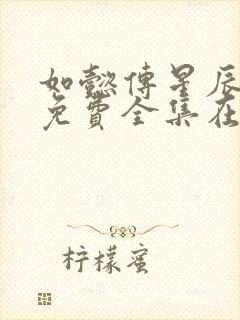 如懿传星辰
免費全集在
柠檬蜜